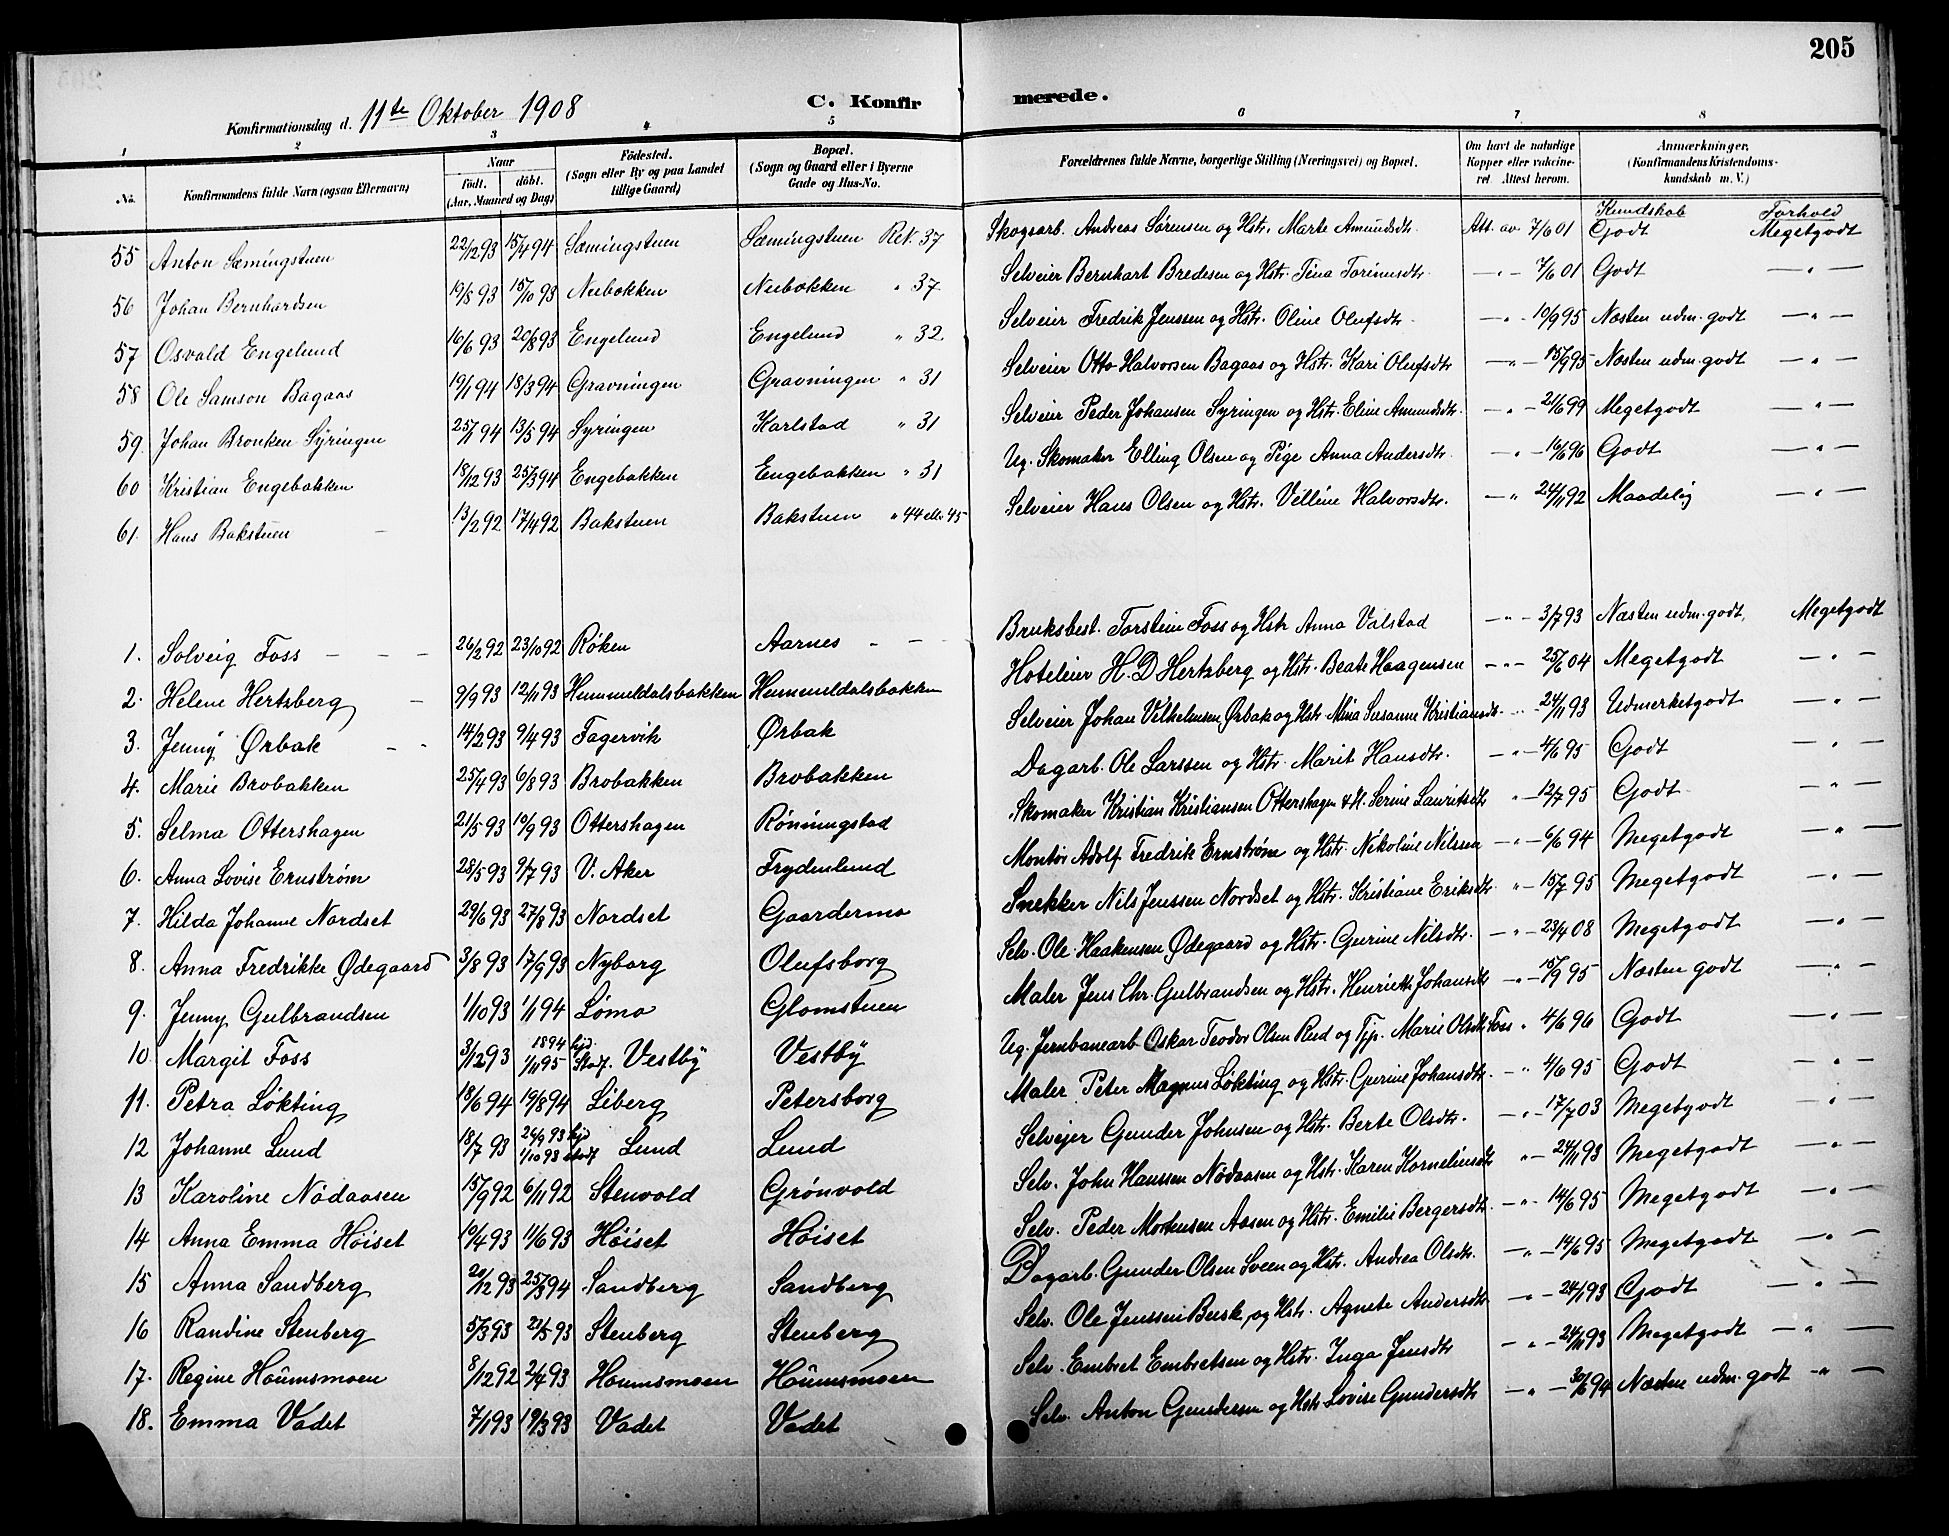 205
Konfirmationsdag d. 11te Oktober 1908 C. Konfirmerede.
1 2 3 4 5 6 7 8
No. Konfirmandens fulde Navn (ogsaa Efternavn) Naar født. døbt. (Aar, Maaned og Dag) Fødested. (Sogn eller By og paa Landet tillige Gaard) Bopæl. (Sogn og Gaard eller i Byerne Gade og Hus-No. Forældrenes fulde Navne, borgerlige Stilling (Næringsvei) og Bopæl. Om havt de naturlige Kopper eller vaccineret. Attest herom. Anmærkninger, (Konfirmandens Kristendomskundskab m. V.)
Kundskab Forhold
55 Anton Sæmingstuen 22/12 93 15/4 94 Sæmingstuen Sæmingstuen Rek. 37 Skogsarb. Andreas Sørensen og Hstr. Marte Amundsdtr. Att. av 7/6 01 Godt Megetgodt
56 Johan Bernhardsen 19/8 93 15/10 93 Nubakken Nubakken " 37 Selveier Bernhart Bredesen og Hstr. Tina Torinusdtr. — " — 7/6 01 Godt — " —
57 Osvald Engelund 16/6 93 20/8 93 Engelund Engelund " 32 Selveier Fredrik Jenssen og Hstr. Oline Olufsdtr. — " — 10/9 95 Næsten udm. godt — " —
58 Ole Samson Bagaas 19/1 94 18/3 94 Gravningen Gravningen " 31 Selveier Otto Halvorsen Bagaas og Hstr. Kari Olufsdtr — " — 15/9 95 Næsten udm. godt — " —
59. Johan Bronken Syringen 25/1 94 13/5 94 Syringen Karlstad " 31 Selveier Peder Johansen Syringen og Hstr. Eline Amundsdtr. — " — 21/6 99 Megetgodt — " —
60 Kristian Engebakken 18/12 93 25/3 94 Engebakken Engebakken " 31 Ug. Skomaker Elling Olsen og Pige Anna Andersdtr. " — 16/6 96 Godt — " —
61. Hans Bakstuen 13/2 92 17/4 92 Bakstuen Bakstuen " 44 ell. 45 Selveier Hans Olsen og Hstr. Velline Halvorsdtr. — " 24/11 92 Maadelig — " —
1. Solveig Foss — — — 26/2 92 23/10 92 Røken Aarnes — — Bruksbest. Torstein Foss og Hstr Anna Valstad — " — 3/7 93 Næsten udm. godt, Megetgodt
2. Helene Hertzberg — 9/9 93 12/11 93 Hummeldalsbakken Hummeldalsbakken Hoteleier H. D Hertzberg og Hstr. Beate Haagensen — " — 25/6 04 Megetgodt — " —
3. Jenny Ørbak 14/2 93 9/4 93 Fagervik Ørbak Selveier Johan Vilhelmsen Ørbak og Hstr Mina Susanne Kristiansdtr. — " — 24/11 93 Udmerketgodt — " —
4. Marie Brobakken 25/4 93 6/8 93 Brobakken Brobakken Dagarb. Ole Larssen og Hstr. Marit Hansdtr. — " — 4/6 95 Godt — " —
5. Selma Ottershagen 21/5 93 10/9 93 Ottershagen Rønningstad Skomaker Kristian Kristiansen Ottershagen & H. Serine Lauritsdtr " — 12/7 95 Godt — " —
6. Anna Lovise Ernstrøm 28/5 93 9/7 93 V. Aker Frydenlund Montør Adolf Fredrik Ernstrøm og Hstr. Nikoline Nilssen — " — 6/6 94 Megetgodt — " —
7. Hilda Johanne Nordset 29/6 93 27/8 93 Nordset Gaardermo Snekker Nils Jenssen Nordset og Hstr. Kristiane Eriksdtr " — 15/7 95 Megetgodt — " —
8. Anna Fredrikke Ødegaard 3/8 93 17/9 93 Nyborg Olufsborg Selv. Ole Haakensen Ødegaard og Hstr. Gurine Nilsdtr. — " — 23/4 08 Megetgodt — " —
9. Jenny Gulbrandsen 1/10 93 1/1 94 Lømo Glomstuen Maler Jens Chr. Gulbrandsen og Hstr. Henriette Johansdtr — " — 15/9 95 Næsten godt — " —
10. Margit Foss 3/12 93 1894 hjd. 1/1 95 Stadf. Vestby Vestby Ug. Jernbanearb Oskar Teodor Olsen Rud og Tjp. Marie Olsdtr. Foss " 4/6 96 Godt — " —
11. Petra Løkting 18/6 94 19/8 94 Liberg Petersborg Maler Peter Magnus Løkting og Hstr. Gurine Johansdtr. — " 4/6 95 Godt — " —
12 Johanne Lund 18/7 93 24/9 93 hjd 1/10 93 stadf Lund Lund Selvejer Gunder Johnsen og Hstr. Berte Olsdtr. — " — 17/7 03 Megetgodt — " —
13 Karoline Nødaasen 15/9 92 6/11 92 Stenvold Grønvold Selv. John Hanssen Nødaasen og Hstr. Karen Korneliusdtr " — 24/11 93 Megetgodt — " —
14 Anna Emma Høiset 10/4 93 11/6 93 Høiset Høiset Selv. Peder Mortensen Aasen og Hstr. Emilie Bergersdtr. — " — 14/6 95 Megetgodt — " —
15 Anna Sandberg 20/12 93 25/3 94 Sandberg Sandberg Dagarb. Gunder Olsen Sveen og Hstr. Andrea Olsdtr. — " — 14/6 95 Megetgodt — " —
16 Randine Stenberg 5/3 93 21/5 93 Stenberg Stenberg Selv. Ole Jenssen Busk, og Hstr. Agnete Andersdtr — " — 24/11 93 Godt — " —
17. Regine Houmsmoen 8/12 92 2/4 93 Houmsmoen Houmsmoen Selv. Embret Embretsen og Hstr. Inga Jensdtr — " — 24/11 93 Megetgodt — " —
18. Emma Vadet 7/1 93 19/3 93 Vadet Vadet Selv. Anton Gundersen og Hstr Lovise Gundersdtr — " — 30/6 94 Næsten udm. godt — " —